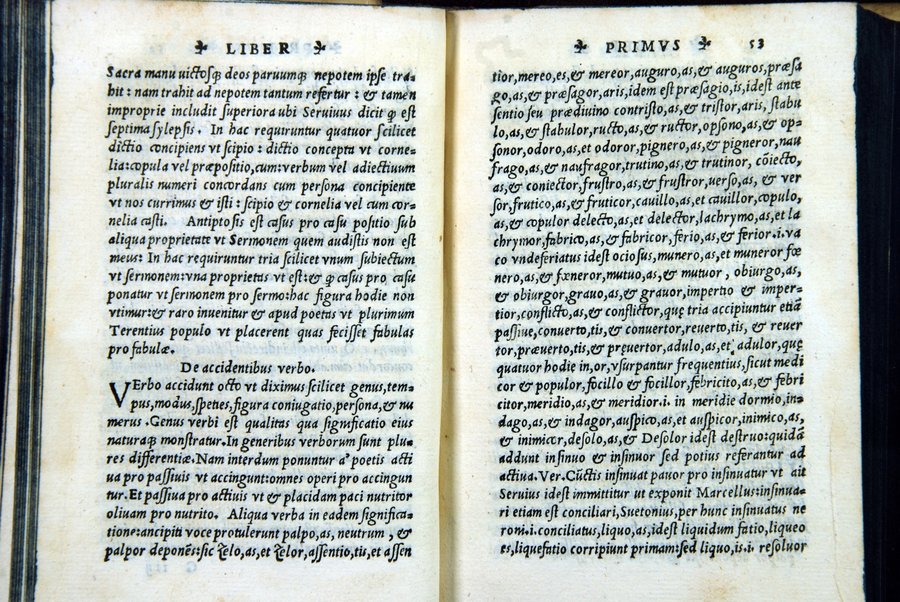 LIBER
Sacra manu uictosq; deos paruumq; nepotem ipse tra-
hit: nam trahit ad nepotem tantum refertur: & tamen
improprie includit superiora ubi Seruius dicit q est
septima sylepsis. In hac requiruntur quatuor scilicet
dictio concipiens vt scipio: dictio concepta vt corne-
lia: copula vel præpositio, cum: verbum vel adiectiuum
pluralis numeri concordans cum persona concipiente
vt nos currimus & isti: scipio & cornelia vel cum cor-
nelia casti. Antiptosis est casus pro casu positio sub
aliqua proprietate vt Sermonem quem audistis non est
meus: In hac requiruntur tria scilicet vnum subiectum
vt sermonem: vna proprietas vt est: & q casus pro casu
ponatur vt sermonem pro sermo: hac figura hodie non
vtimur: & raro inuenitur & apud poetas vt plurimum
Terentius populo vt placerent quas fecisset fabulas
pro fabulæ.
De accidentibus verbo.
VErbo accidunt octo vt diximus scilicet genus, tem-
pus, modus, speties, figura coniugatio, persona, & nu
merus. Genus verbi est qualitas qua significatio eius
naturaq; monstratur. In generibus verborum sunt plu-
res differentiæ. Nam interdum ponuntur a' poetis acti
ua pro passiuis vt accingunt: omnes operi pro accingun
tur. Et passiua pro actiuis vt & placidam paci nutritor
oliuam pro nutrito. Aliqua verba in eadem significa-
tione: ancipiti voce protulerunt palpo, as, neutrum, &
palpor deponēs: sic zelo, as, et zelor, assentio, tis, et assen
PRIMVS 53
tior, mereo, es, & mereor, auguro, as, & auguros, præsa
go, as, & præsagor, aris, idem est præsagio, is, idest ante
sentio seu prædiuino contristo, as, & tristor, aris, stabu
lo, as, & stabulor, ructo, as, & ructor, opsono, as, & op-
sonor, odoro, as, et odoror, pignero, as, & pigneror, nau
frago, as, & naufragor, trutino, as, & trutinor, cōiecto,
as, & coniector, frustro, as, & frustror, uerso, as, & ver
sor, frutico, as, & fruticor, cauillo, as, et cauillor, copulo,
as, & copulor delecto, as, et delector, lachrymo, as, et la
chrymor, fabrico, as, & fabricor, ferio, as, & ferior .i. va
co vndeferiatus idest ociosus, munero, as, et muneror fœ
nero, as, & fœneror, mutuo, as, & mutuor, obiurgo, as,
& obiurgor, grauo, as, & grauor, impertio & imper-
tior, conflicto, as, & conflictor, quę tria accipiuntur etiā
passiue, conuerto, tis, & conuertor, reuerto, tis, & reuer
tor, præuerto, tis, & pręuertor, adulo, as, et adulor, quę
quatuor hodie in, or, vsurpantur frequentius, sicut medi
cor & populor, focillo & focillor, febricito, as, & febri
citor, meridio, as, & meridior .i. in meridie dormio, in-
dago, as, & indagor, auspico, as, et auspicor, inimico, as,
& inimicor, desolo, as, & Desolor idest destruo: quidā
addunt insinuo & insinuor sed potius referantur ad
actiua. Ver. Cūctis insinuat pauor pro insinuatur vt ait
Seruius idest immittitur ut exponit Marcellus: insinua-
ri etiam est conciliari, Suetonius, per hunc insinuatus ne
roni .i. conciliatus, liquo, as, idest liquidum fatio, liqueo
es, liquefatio corripiunt primam: sed liquo, is .i. resoluor